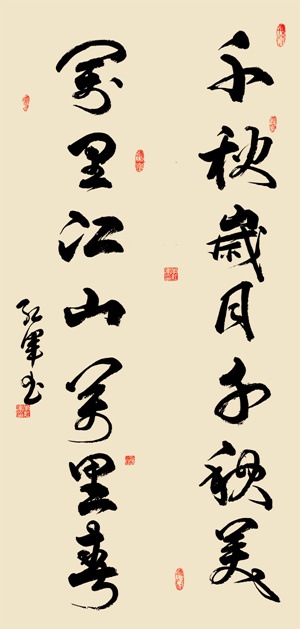 千秋歲月千秋美
萬里江山萬里春
紅軍书